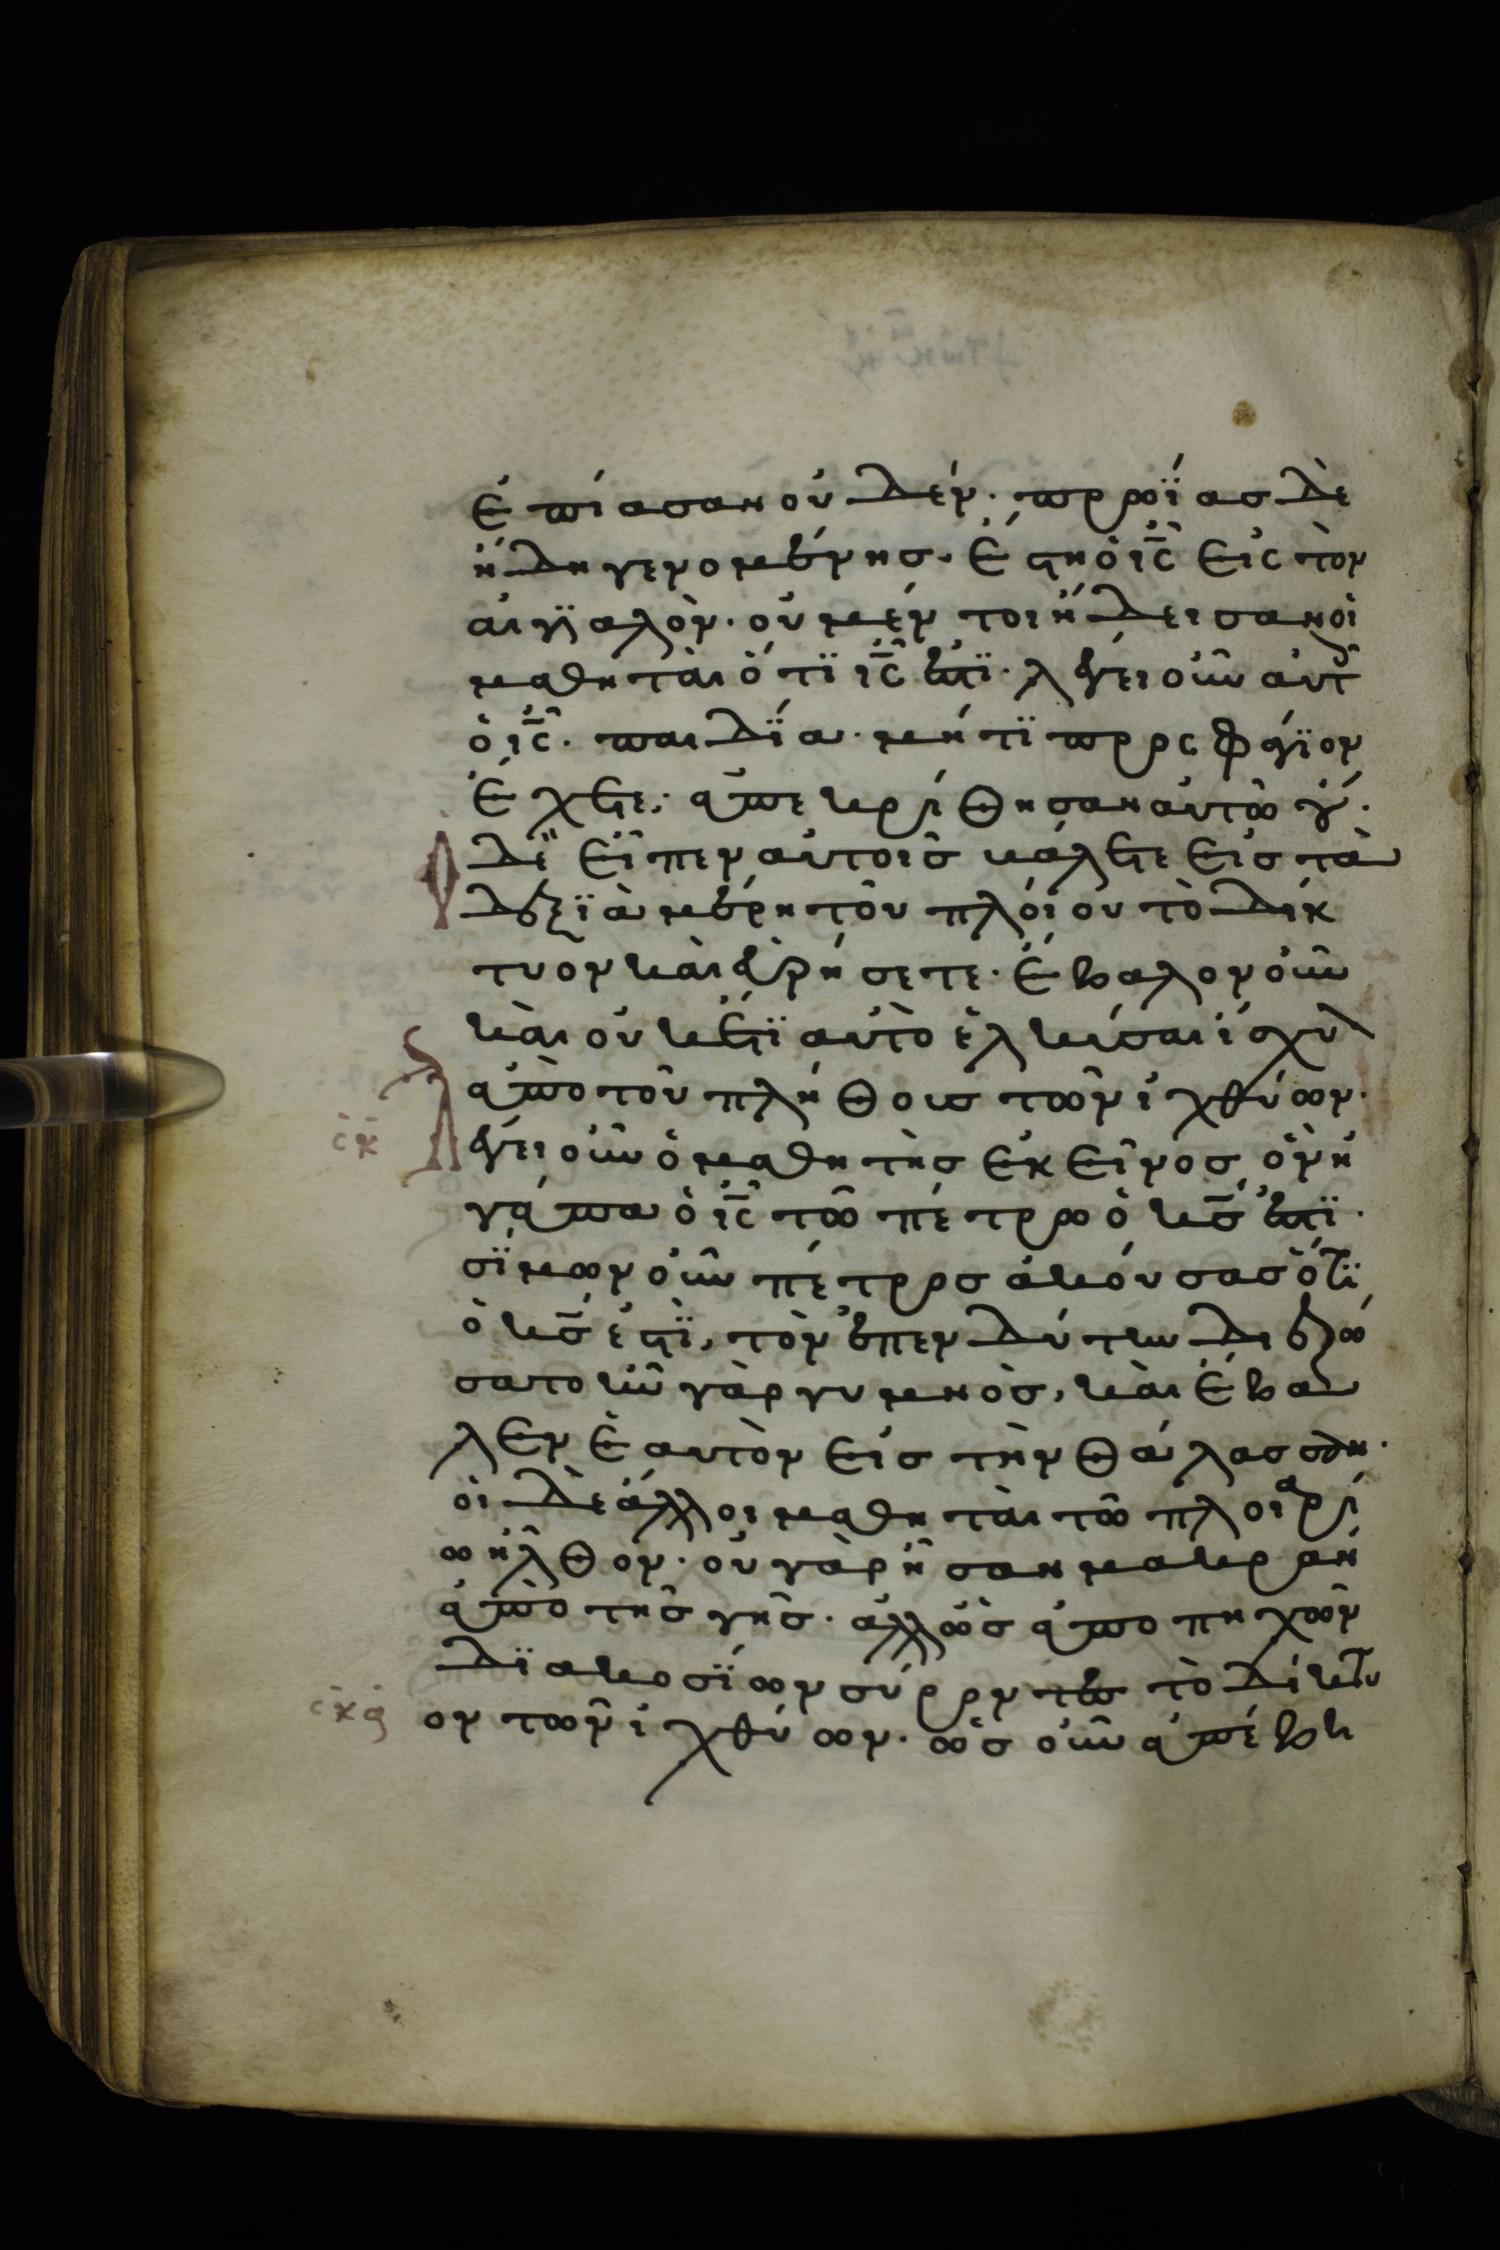 ἐπίασαν οὐδέν· πρωΐας δὲ
ἤδη γενομένης· ἔστη ὁ ις εἰς τὸν
αἰγϊαλὸν· οὐ μέν τοι ἤδεισαν οἱ
μαθηταὶ ὅτϊ ις ἐστϊ· λέγει οὖν αὐτ
ὁ ις· παιδΐα· μή τϊ προσφάγϊον
ἔχετε; ἀπεκρίθησαν αὐτῶ οὔ·
ὁ δὲ εἶπεν αὐτοῖς βάλετε εἰς τὰ
δεξϊὰ μέρη τοῦ πλοίου τὸ δίκ
τυον καὶ εὑρήσετε· ἔβαλον οὖν
καὶ οὐκ ἔτϊ αὐτὸ ἑλκῦσαι ἴσχυ
ἀπὸ τοῦ πλήθους τῶν ἰχθύων·
σκ λέγει οὖν ὁ μαθητὴς ἐκεῖνος, ὃν ἠ
γάπα ὁ ις τῶ πέτρω ὁ κς ἐστϊ·
σΐμων οὖν πέτρος ἀκούσας ὅτϊ
ὁ κς ἐστϊ, τὸν ἐπενδύτην διεζώ
σατο ἦν γὰρ γυμνὸς, καὶ ἔβα
λεν ἑαυτὸν εἰς τὴν θάλασσαν·
οἱ δὲ ἄλλοι μαθηταὶ τῶ πλοιαρί
ω ἦλθον· οὐ γὰρ ἦσαν μακρὰν
ἀπὸ τῆς γῆς· ἀλλ' ὡς ἀπο πηχῶν
δϊακοσΐων σύροντες τὸ δίκτυ
σκα ον τῶν ἰχθύων· ὡς οὖν ἀπέβη